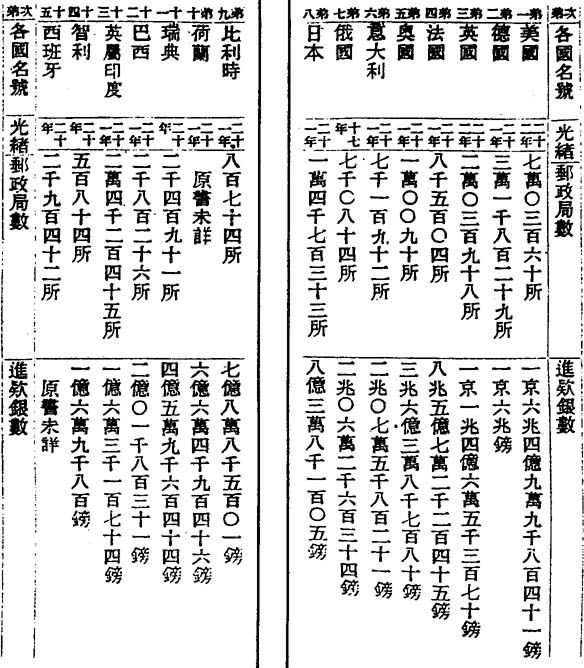 次第 各國名號 光緒 郵政局數 進欵銀數
第一 美國 二十一年 七萬〇三百六十所 一京六兆四億九萬九千八百四十一鎊
第二 德國 二十一年 三萬一千八百二十九所 一京六兆鎊
第三 英國 二十一年 二萬〇三百九十八所 一京一兆四億六萬五千三百七十鎊
第四 法國 二十一年 八千五百〇四所 八兆五億七萬二千二百四十五鎊
第五 奧國 二十一年 一萬〇〇九十所 三兆六億三萬八千七百八十鎊
第六 意大利 二十一年 七千一百九十二所 二兆〇七萬五千八百二十一鎊
第七 俄國 十七年 七千〇八十四所 二兆〇六萬二千六百三十四鎊
第八 日本 二十一年 一萬四千七百三十三所 八億三萬八千一百〇五鎊
第九 比利時 二十一年 八百七十四所 七億八萬八千五百〇一鎊
第十 荷蘭 二十一年 原書未詳 六億六萬四千九百四十六鎊
第十一 瑞典 二十年 二千四百九十一所 四億五萬九千六百四十四鎊
第十二 巴西 二十一年 二千八百二十六所 二億〇一千八百三十一鎊
第十三 英屬印度 二十一年 二萬四千二百四十五所 一億六萬三千一百七十四鎊
第十四 智利 二十年 五百八十四所 一億六萬九千八百鎊
第十五 西班牙 二十年 二千九百四十二所 原書未詳
次第 各國名號 光緒 郵政局數 進欵銀數